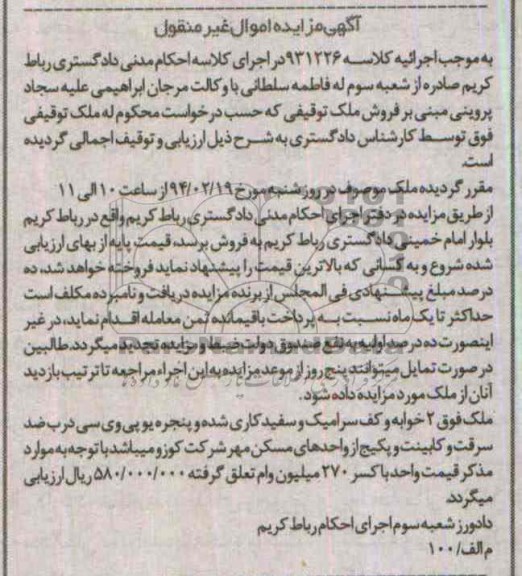 آگهی مزایده اموال غیر منقول
به موجب اجرائیه کلاسه ۹۳۱۲۲۶ در اجرای کلاسه احکام مدنی دادگستری رباط
کریم صادره از شعبه سوم له فاطمه سلطانی با وکالت مرجان ابراهیمی علیه سجاد
پروینی مبنی بر فروش ملک توقیفی که حسب درخواست محکوم له ملک توقیفی
فوق توسط کارشناس دادگستری به شرح ذیل ارزیابی و توقیف اجمالی گردیده
است.
مقرر گردیده ملک موصوف در روز شنبه مورخ ۹۴/۰۲/۱۹ از ساعت ۱۰ الی ۱۱
از طریق مزایده در دفتر اجرای احکام مدنی دادگستری رباط کریم واقع در رباط کریم
بلوار امام خمینی دادگستری رباط کریم به فروش برسد، قیمت پایه از بهای ارزیابی
شده شروع و به کسانی که بالاترین قیمت را پیشنهاد نماید فروخته خواهد شد، ده
درصد مبلغ پیشنهادی فی المجلس از برنده مزایده دریافت و نامبرده مکلف است
حداکثر تا یک ماه نسبت به پرداخت باقیمانده ثمن معامله اقدام نماید، در غیر
اینصورت ده درصد اولیه به نفع صندوق دولت ضبط و مزایده تجدید میگردد. طالبین
در صورت تمایل میتوانند پنج روز از موعد مزایده به این اجراء مراجعه تا ترتیب بازدید
آنان از ملک مورد مزایده داده شود.
ملک فوق ۲ خوابه و کف سرامیک و سفید کاری شده و پنجره یو پی وی سی درب ضد
سرقت و کابینت و پکیج از واحدهای مسکن مهر شرکت کوزو میباشد با توجه به موارد
مذکر قیمت واحد با کسر ۲۷۰ میلیون وام تعلق گرفته ۵۸۰/۰۰۰/۰۰۰ ریال ارزیابی
میگردد.
دادورز شعبه سوم اجرای احکام رباط کریم
م الف/۱۰۰